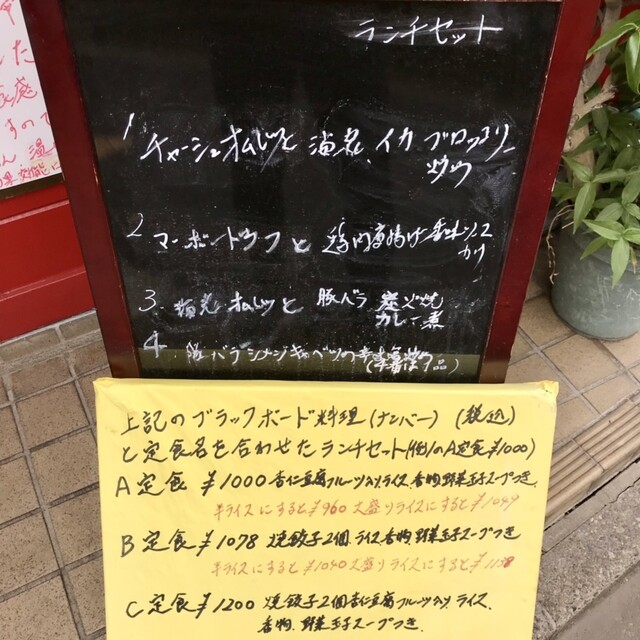 ランチセット
1 チャーシューオムレツと 海老、イカ ブロッコリー
炒め
2 マーボードウフと 鶏肉唐揚げ 香味ソース
カケ
3. 海老 オムレツと 豚バラ
カレー煮
4. 豚バラ シメジ キャベツの辛味噌炒め
上記のブラックボード料理(ナンバー) (税込)
と定食名を合わせたランチセット(例)1のA定食¥1000)
A定食 ¥1000 杏仁豆腐フルーツ入り、ライス、香物、野菜玉子スープつき、
半ライスにすると¥960 大盛りライスにすると¥1049
B定食 ¥1078 焼餃子2個、ライス、香物、野菜玉子スープつき
半ライスにすると¥1040 大盛りライスにすると
C定食 ¥1200 焼餃子2個 杏仁豆腐フルーツ入り、ライス、
香物、野菜玉子スープつき、